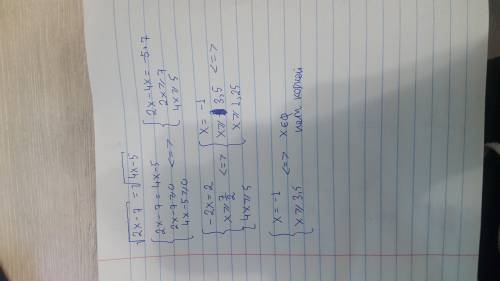 √2x-7 = √4x-5
{ 2x-7 = 4x-5
2x-7⩾0 <=>
4x-5⩾0
{ 2x-4x = -5+7
2x⩾7
4x⩾5
{ -2x = 2
x⩾7/2 <=>
4x⩾5
{ x = -1
x⩾3,5 <=>
x⩾1,25
{ x = -1
x⩾3,5
<=> x∈∅
нет корней